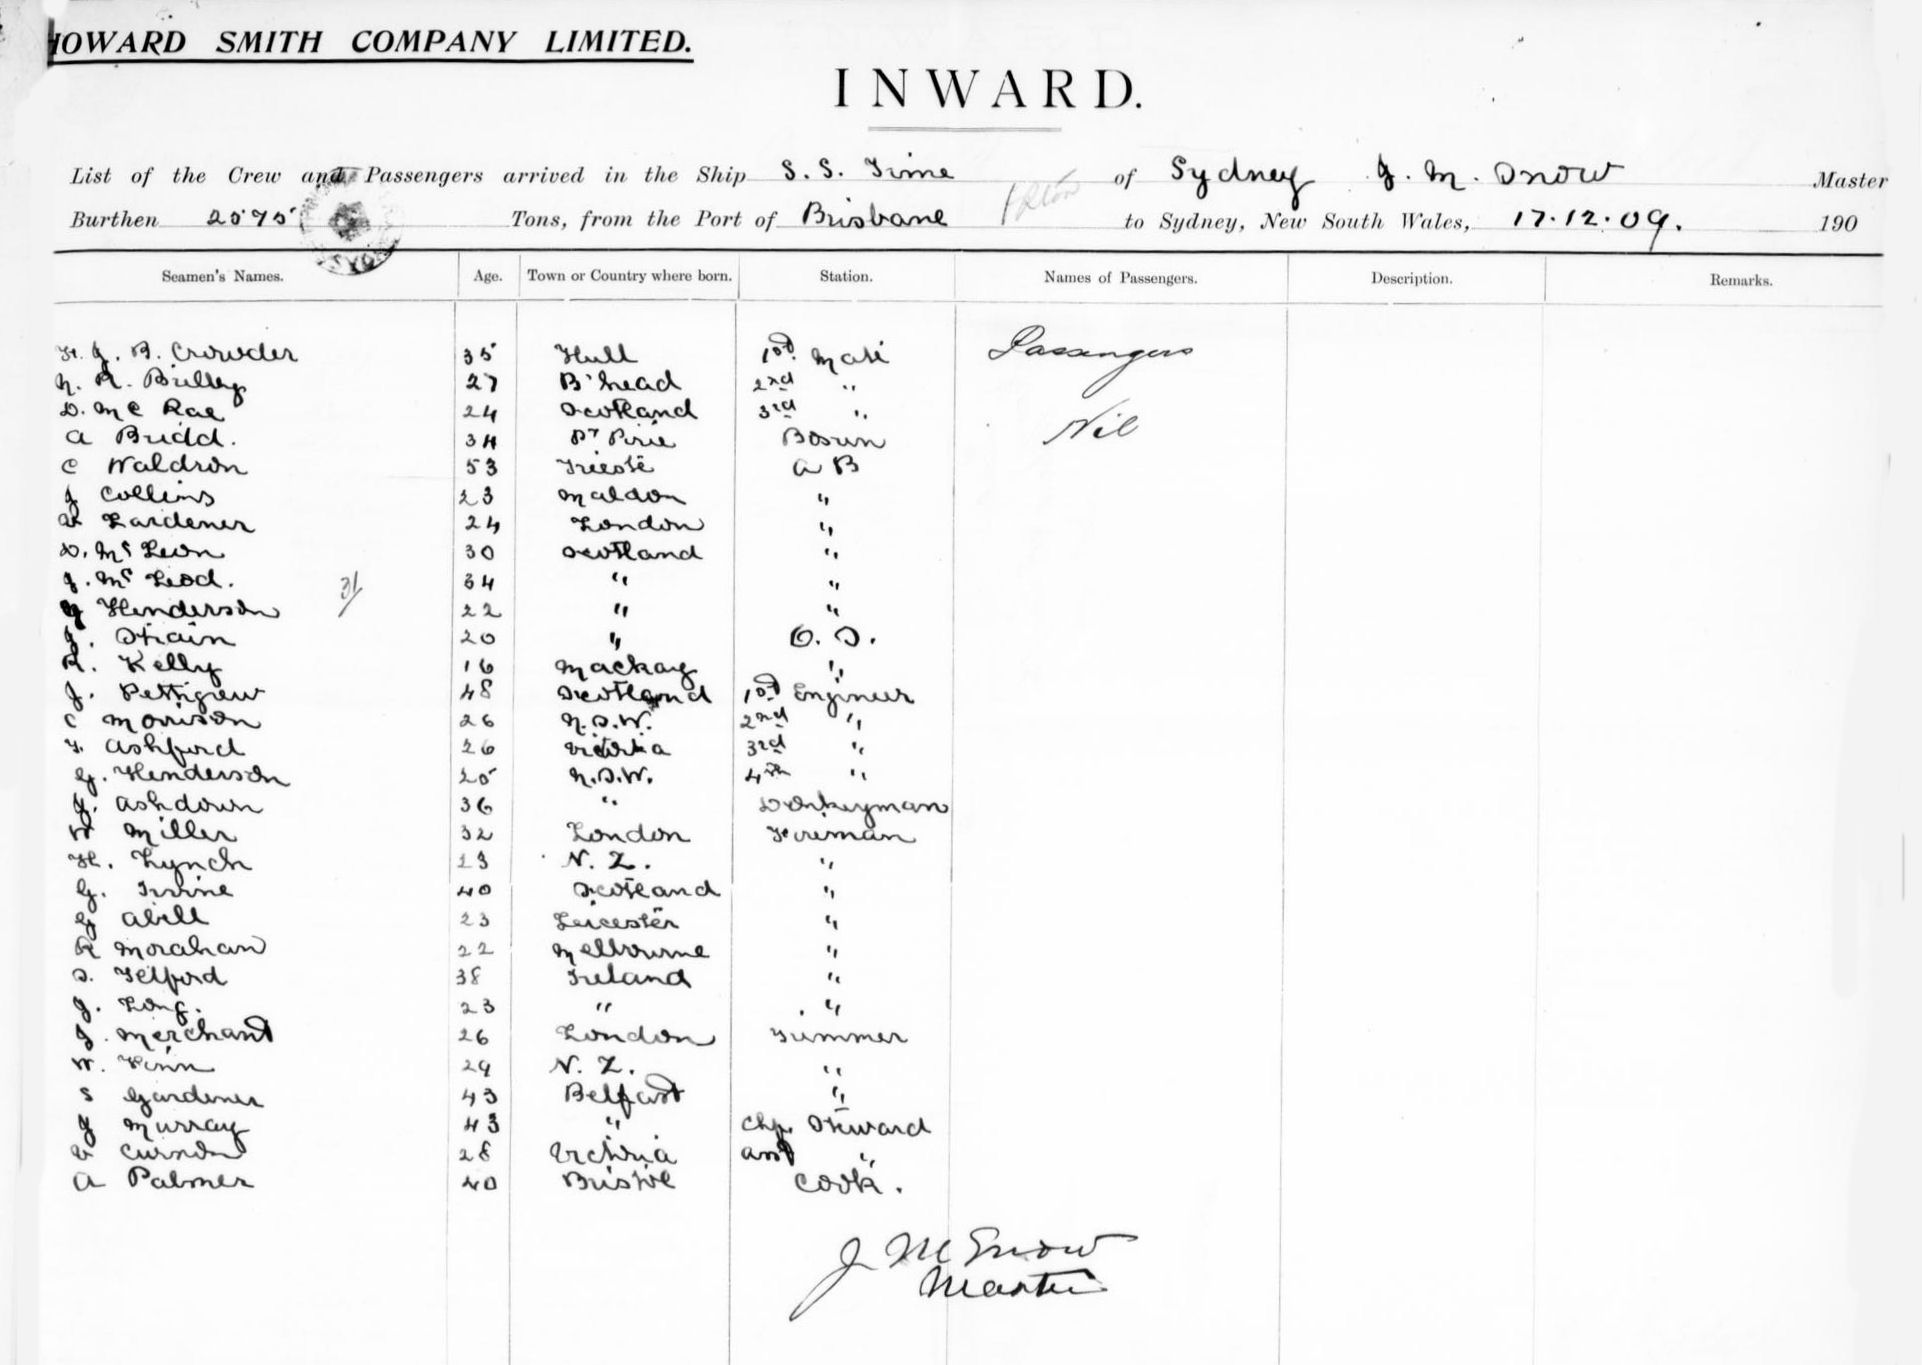 HOWARD SMITH COMPANY LIMITED.
INWARD.
List of the Crew and Passengers arrived in the Ship S. S. Time of Sydney J. M. Snow Master
Burthen 2575 Tons, from the Port of Brisbane to Sydney, New South Wales, 17.12.09. 190
Seamen's Names. Age. Town or Country where born. Station. Names of Passengers. Description. Remarks.
H. J. B. Crowder 35 Hull 1st Mate Passengers
N. R. Brilley 27 B'head 2nd "
D. Mc Rae 24 Scotland 3rd "
A Budd. 34 Pt Pirie Bosun Nil
C Waldron 53 Trieste A B
J Collins 23 Maldon "
Lardener 24 London "
D. Mc Leon 30 Scotland "
J. Mc Leod. 34 " "
Henderson 22 " "
J. Strain 20 " O. S.
R. Kelly 16 Mackay "
J. Pettigrew 48 Scotland 1st Engineer
C Morrison 26 N.S.W. 2nd "
F. Ashford 26 Victoria 3rd "
G. Henderson 25 N.S.W. 4th "
J. Ashdown 36 " Donkeyman
W Miller 32 London Fireman
H. Lynch 23 N. Z. "
G. Irvine 40 Scotland "
G Abell 23 Leicester "
R Morahan 22 Melbourne "
S. Telford 38 Ireland "
J. Long. 23 " "
J. Merchant 26 London Trimmer
W. Finn 29 N. Z. "
S Gardener 43 Belfast "
J Murray 43 " Chf. Steward
Curnow 28 Victoria asst "
A Palmer 40 Bristol Cook.
J M Snow
Master